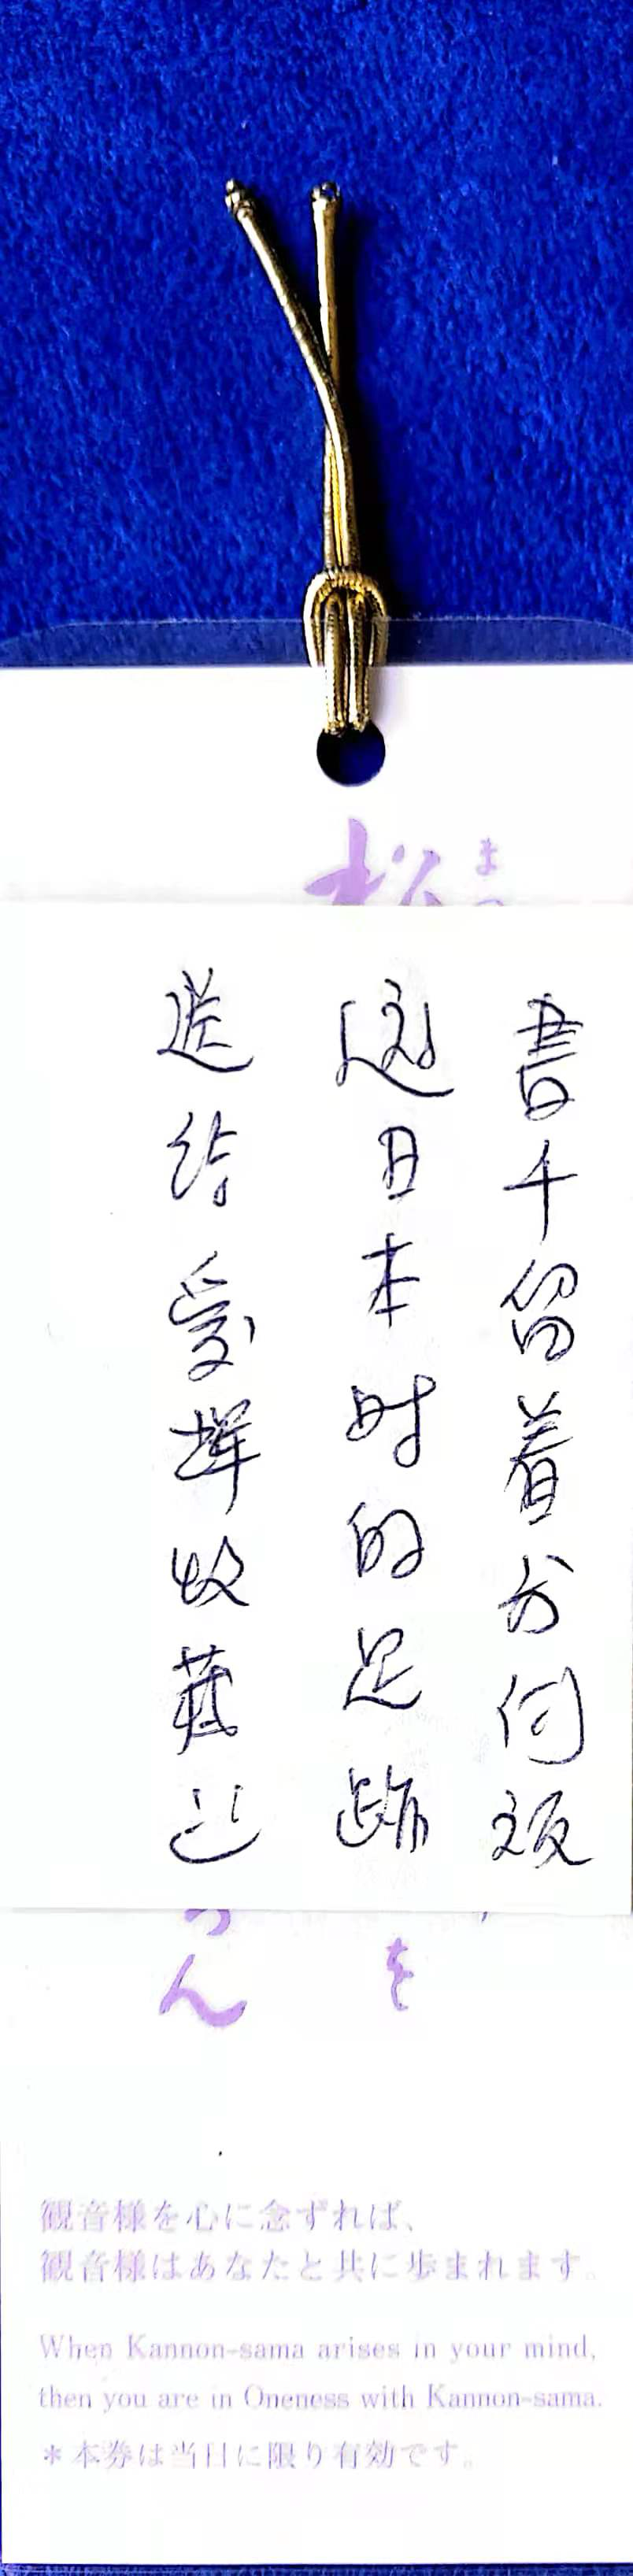 松
ま
書千留着
日本时的足跡
送给爱 收藏
を
ん
観音様を心に念ずれば、
観音様はあなたと共に歩まれます。
When Kannon-sama arises in your mind,
then you are in Oneness with Kannon-sama.
＊本券は当日に限り有効です。